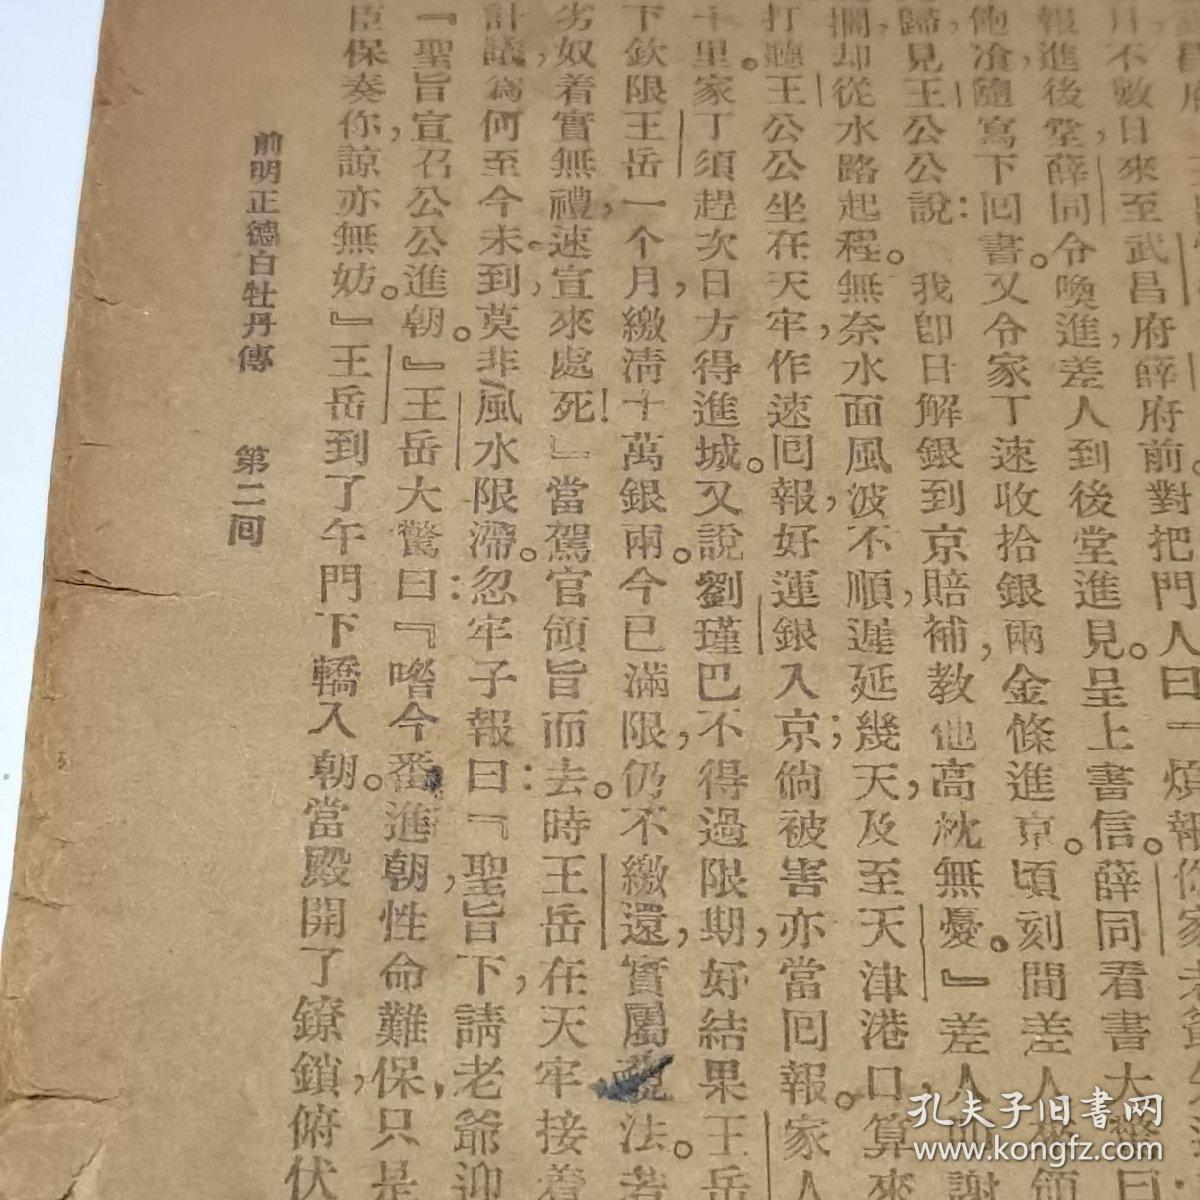 昌府
月,不數日來至武昌府薛府前對把門人曰『煩報
報進後堂薛同令喚進差人到後堂進見。呈上書信。薛同看書大驚曰
飽飡,隨寫下回書。又令家丁速收拾銀兩金條進京。頃刻間差人
歸,見王公公說:我卽日解銀到京賠補,教他高枕無憂。』差人叩謝
擱,却從水路起程。無奈水面風波不順,遲延幾天,及至天津港口,算來
打聽王公公坐在天牢,作速囘報,好運銀入京;倘被害亦當囘報。家人
十里。家丁須趕次日方得進城。又說劉瑾巴不得過限期,好結果王岳
下欽限王岳一个月,繳淸十萬銀兩。今已滿限,仍不繳還,實屬藐法。若
劣奴着實無禮,速宣來處死!』當駕官領旨而去。時王岳在天牢接着
計議,爲何至今未到,莫非風水限滯。忽牢子報曰:『聖旨下,請老爺迎
『聖旨宣召公公進朝。』王岳大驚曰:『喒今番進朝,性命難保,只是
臣保奏你,諒亦無妨。』王岳到了午門下轎入朝。當殿開了鐐鎖,俯伏
前明正德白牡丹傳 第二回
孔夫子旧书网
www.kongfz.com